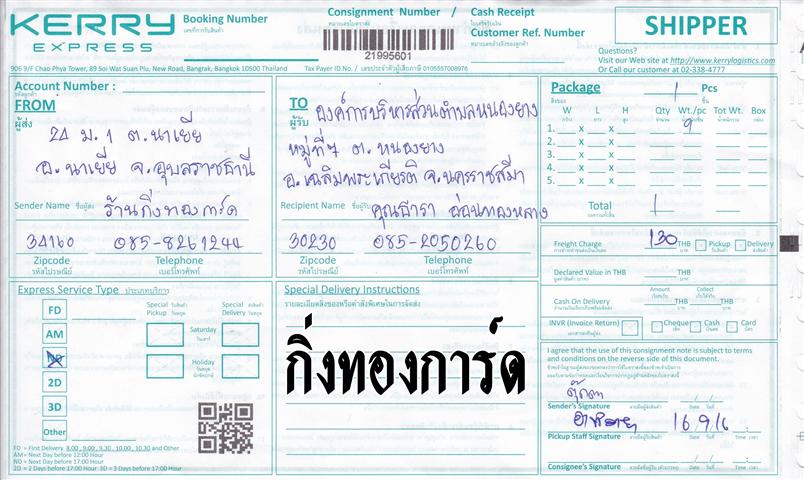 KERRY
EXPRESS
Booking Number
เลขที่การรับสินค้า
Consignment Number /
หมายเลขใบตราส่ง
21995601
Cash Receipt
ใบเสร็จรับเงิน
Customer Ref. Number
หมายเลขอ้างอิงของลูกค้า
SHIPPER
Questions?
Visit our Web site at http://www.kerrylogistics.com
Or Call our customer at 02-338-4777
906 9/F Chao Phya Tower, 89 Soi Wat Suan Plu, New Road, Bangrak, Bangkok 10500 Thailand
Tax Payer ID.No. / เลขประจำตัวผู้เสียภาษี 0105557008976
Account Number :
รหัสลูกค้า
FROM
ผู้ส่ง
24 ม.1 ต.นาเยีย
อ.นาเยีย จ.อุบลราชธานี
Sender Name ชื่อผู้ส่ง ร้านกิ่งทองการ์ด
34160 085-8261244
Zipcode Telephone
รหัสไปรษณีย์ เบอร์โทรศัพท์
TO
ผู้รับ
องค์การบริหารส่วนตำบลหนองยาง
หมู่ที่ 7 ต.หนองยาง
อ.เฉลิมพระเกียรติ จ.นครราชสีมา
Recipient Name ชื่อผู้รับ คุณธารา อ่อนทองหลาง
30230 085-2050260
Zipcode Telephone
รหัสไปรษณีย์ เบอร์โทรศัพท์
Package 1 Pcs
สิ่งของ ชิ้น
W L H Qty Wt./pc Tot Wt. Box
กว้าง ยาว สูง จำนวน
1. x x 9
2. x x
3. x x
4. x x
5. x x
Total 1
Freight Charge 130 THB Pickup Delivery
บาท
Declared Value in THB THB
บาท
Amount Collect
Cash On Delivery THB
บาท
INVR (Invoice Return) Cheque Cash Card
เช็ค เงินสด บัตร
I agree that the use of this consignment note is subject to terms
and conditions on the reverse side of this document.
Sender's Signature ลายมือผู้ส่งสินค้า Date วันที่
16/9/16
Pickup Staff Signature Date วันที่ Time เวลา
Consignee's Signature Date วันที่ Time เวลา
Express Service Type ประเภทบริการ
FD
AM
ND
2D
3D
Other
Special Pickup
Special Delivery
Saturday
วันเสาร์
Holiday
วันหยุด
นักขัตฤกษ์
FD = First Delivery 8.00 , 9.00 , 9.30 , 10.00, 10.30 and Other
AM = Next Day before 12:00 Hour
ND = Next Day before 17:00 Hour
2D = 2 Days before 17:00 Hour 3D = 3 Days before 17:00 Hour
Special Delivery Instructions
รายละเอียดสิ่งของหรือคำสั่งพิเศษในการจัดส่ง
กิ่งทองการ์ด